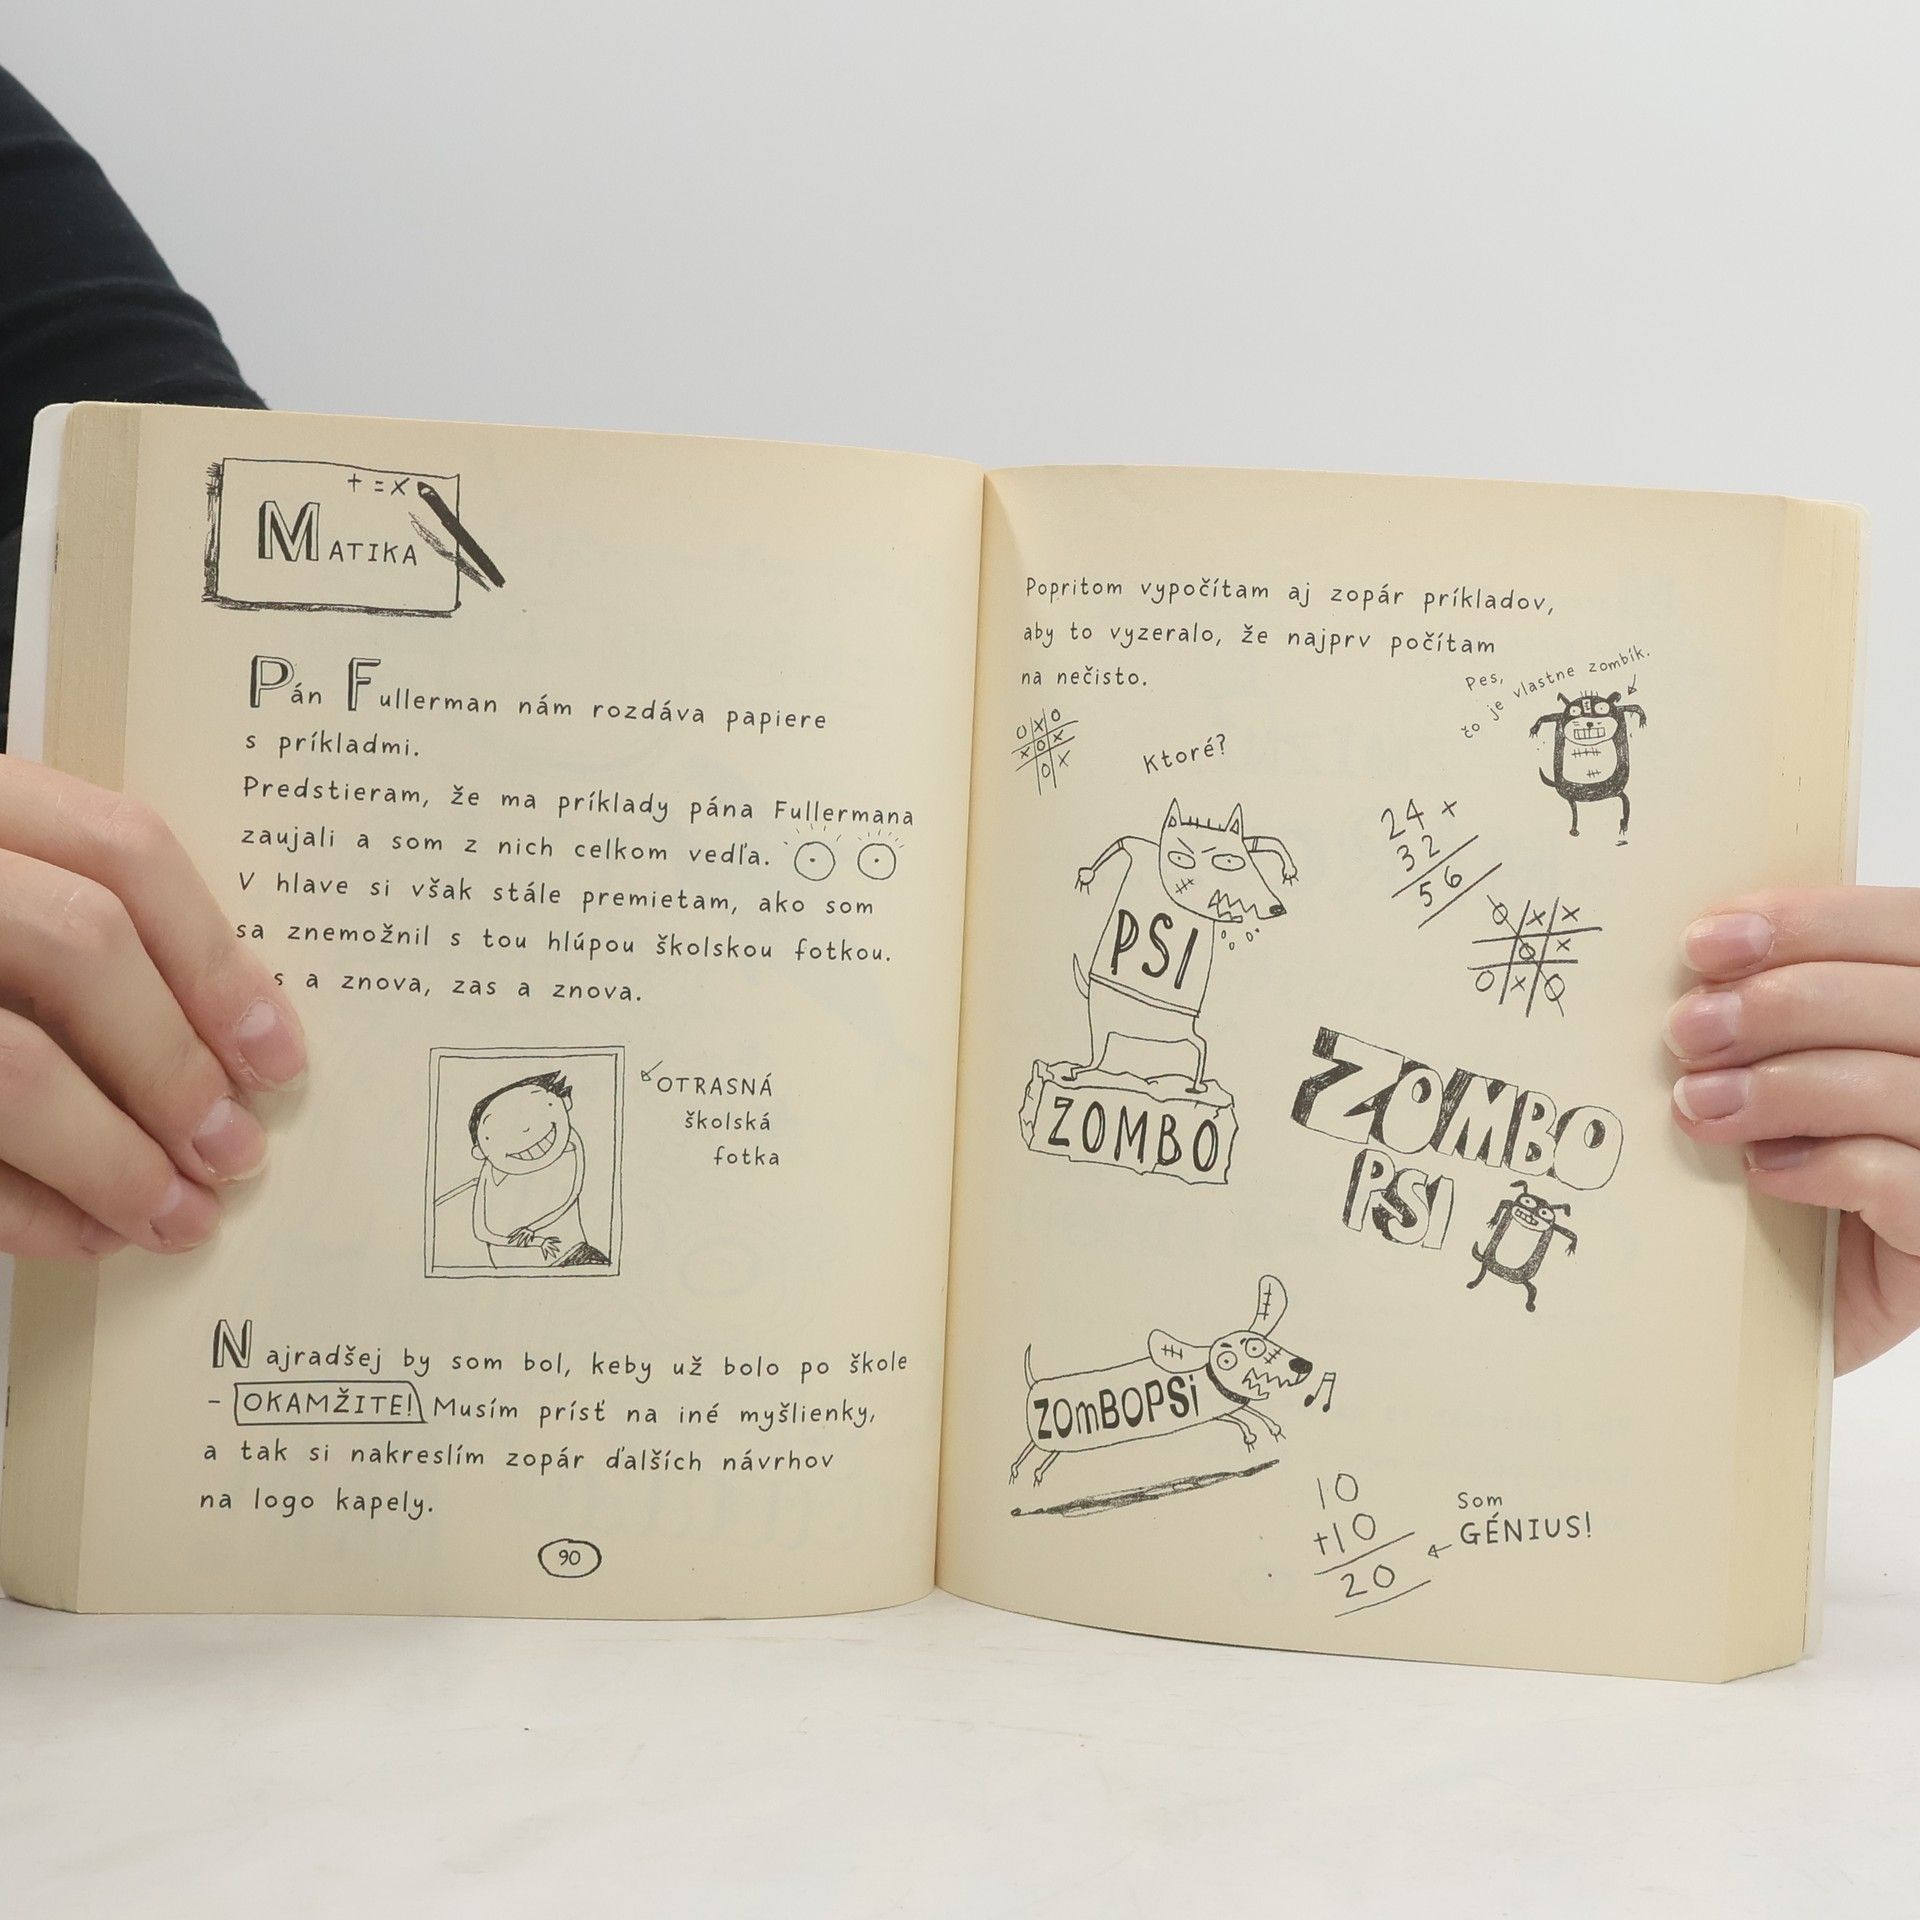 + = x
MATIKA
Pán Fullerman nám rozdáva papiere
s príkladmi.
Predstieram, že ma príklady pána Fullermana
zaujali a som z nich celkom vedľa.
V hlave si však stále premietam, ako som
sa znemožnil s tou hlúpou školskou fotkou.
a znova, zas a znova.
OTRASNÁ
školská
fotka
Najradšej by som bol, keby už bolo po škole
– OKAMŽITE! Musím prísť na iné myšlienky,
a tak si nakreslím zopár ďalších návrhov
na logo kapely.
90
Popritom vypočítam aj zopár príkladov,
aby to vyzeralo, že najprv počítam
na nečisto.
Pes,
čo je vlastne zombík.
O X O
X O X
O X
Ktoré?
24 x
32
56
O X X
O X
O X O
PSI
ZOMBO
ZOMBO
PSI
ZOmBOPSi
10
+10
20
Som
GÉNIUS!